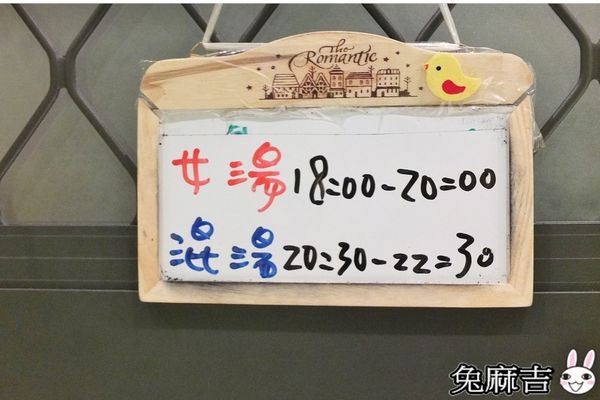 The
Romantic
女湯 18:00-20:00
混湯 20:30-22:30
兔麻吉